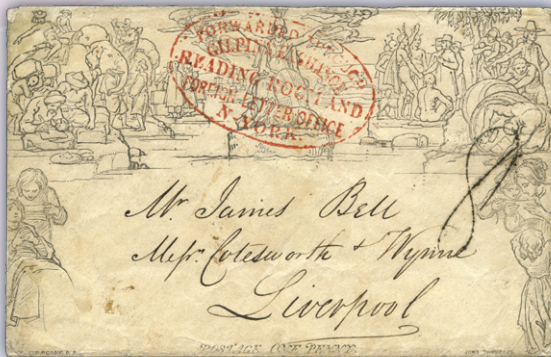 FORWARDED THROUGH
GILPIN'S EXCHANGE
READING ROOM AND
FOREIGN LETTER OFFICE
N-YORK.
8
Mr. James Bell
Messrs. Cotesworth & Wynne
Liverpool
POSTAGE